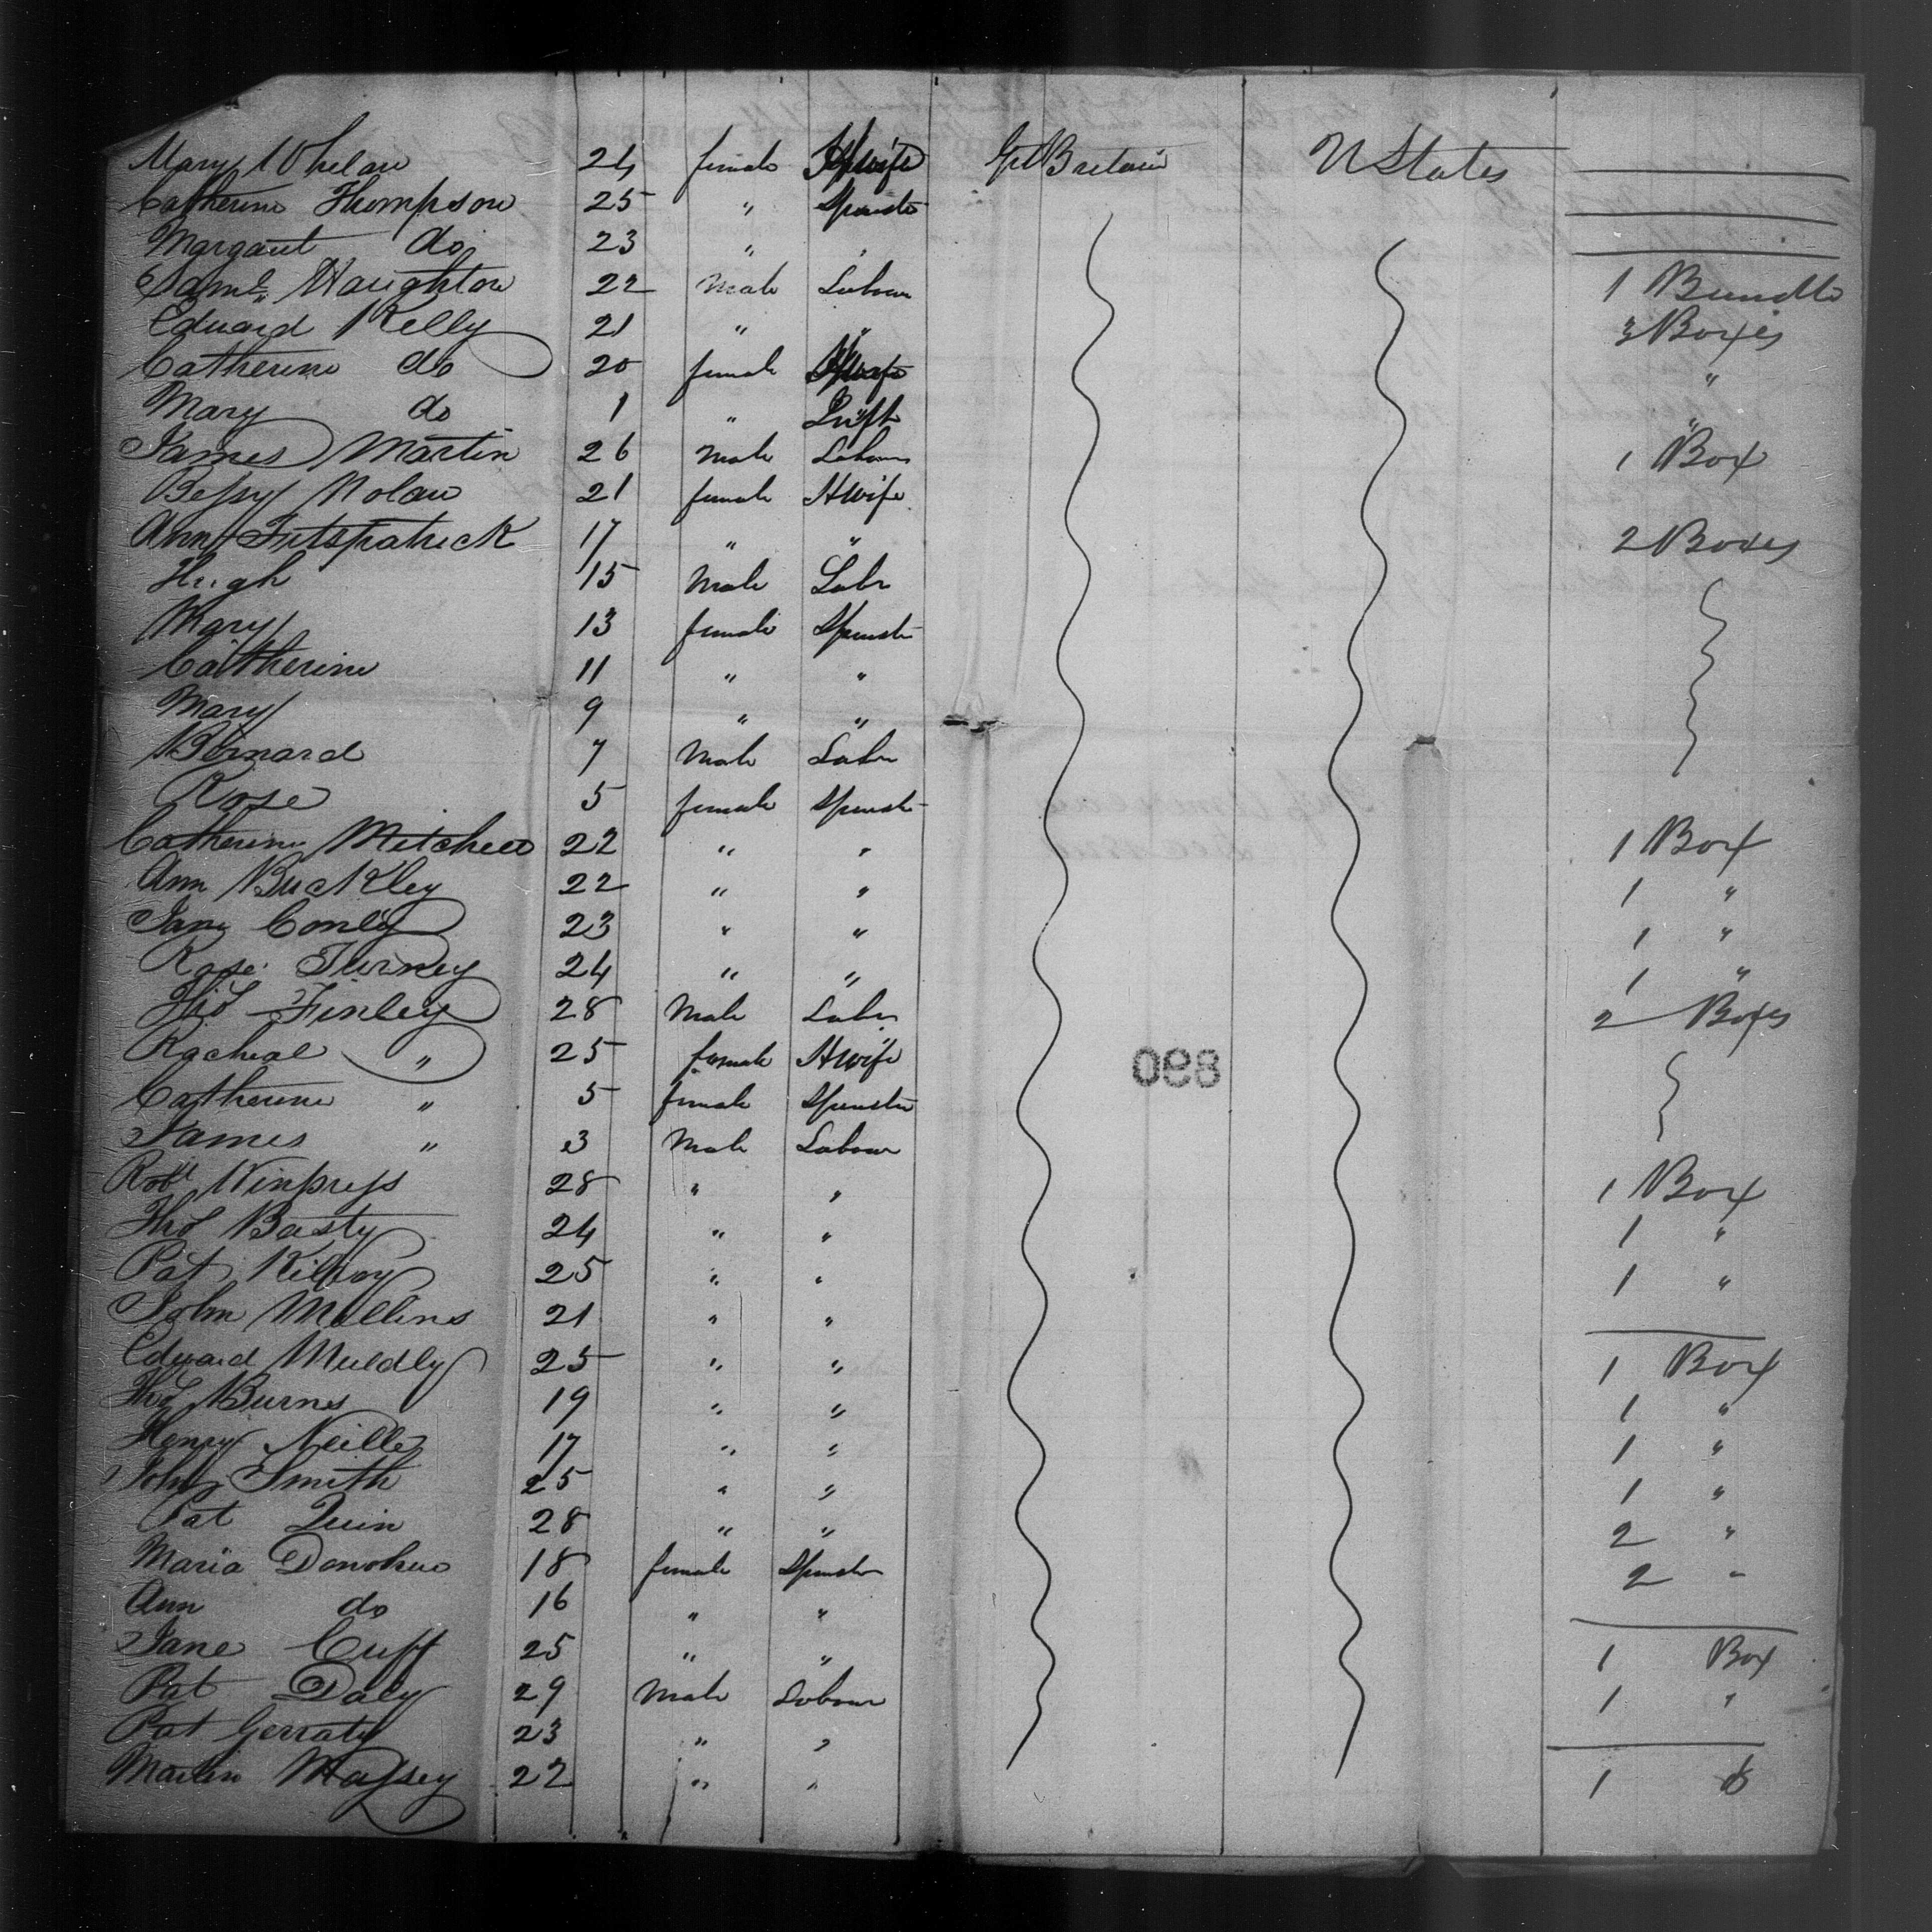 Mary Whelan 24 female Hwife Gt Britain U States
Catherine Thompson 25 " Spinster
Margaret do 23 " "
Saml Haughton 22 Male Labour 1 Bundle
Edward Kelly 21 " " 3 Boxes
Catherine do 20 female Hwife "
Mary do 1 " "
James Martin 26 Male Labour 1 Box
Bessy Nolan 21 female Hwife
Ann Fitspatrick 17 " " 2 Boxes
Hugh 15 Male Labr
Mary 13 female Spinster
Catherine 11 " "
Mary 9 " "
Bernard 7 Male Labr
Rose 5 female Spinster
Catherine Mitchell 22 " " 1 Box
Ann Buckley 22 " " 1 "
Jane Conley 23 " " 1 "
Rose 24 " " 1 "
Thos Finley 28 Male Labr 2 Boxes
Racheal " 25 female Hwife
Catherine " 5 female Spinster
James " 3 Male Labour
Robt 28 " " 1 Box
Thos Basty 24 " " 1 "
Pat Kilroy 25 " " 1 "
John Mullins 21 " "
Edward Muldly 25 " " 1 Box
Thos Burns 19 " " 1 "
Henry Neille 17 " " 1 "
John Smith 25 " " 1 "
Pat Quin 28 " " 2 "
Maria Donohue 18 female Spinster 2 "
Ann do 16 " "
Jane Cuff 25 " " 1 Box
Pat Daly 29 Male Labour 1 "
Pat Gerraty 23 " "
Martin Massey 22 " " 1